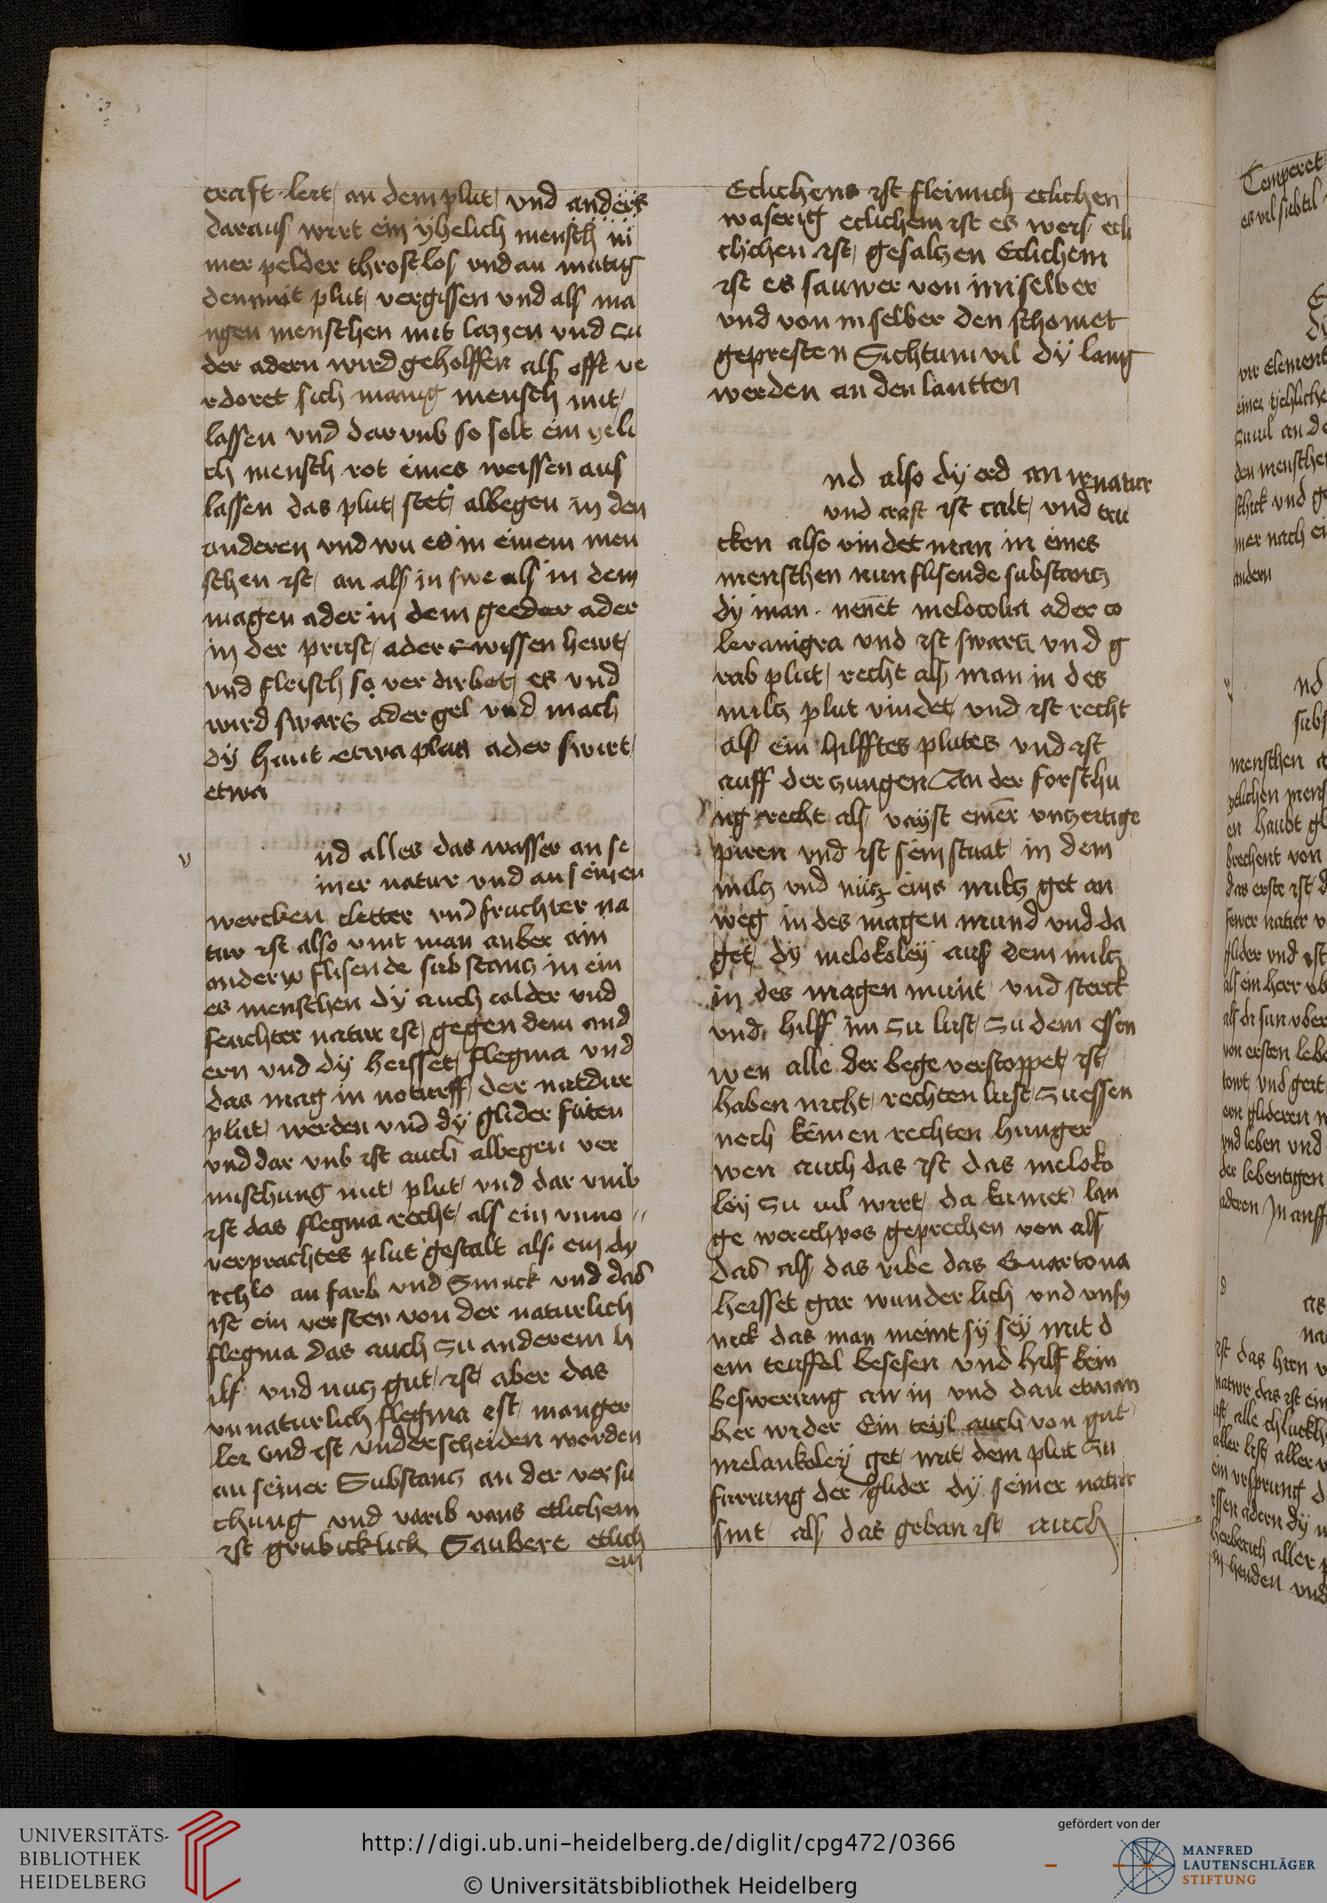 craft lert an dem plut und anders
daraus wirt ein yhelich mensch in
mer pelder throstlos und an mutig
den mit plut vergissen und als ma
ngen menschen mit lazzen und zu
der adern wird geholffen als offt ve
rdoret sich manig mensch mit
lassen und dar umb so solt ein yeli
ch mensch rot eines weissen aus
lassen das plut stet albegen in den
anderen und wu es in einem men
schen ist an als in swe als in dem
magen ader in dem geeder ader
in der prust ader zwissen hewt
und fleisch so ver dirbet es und
wird swarz ader gel und mach
dy haut etwa plaa ader swirt
etwa
v
nd alles das wasser an se
iner natur und an seinen
wercken cletter und fruchter na
tur ist also vint man anber ain
anderw flisende substanz in ein
es menschen dy auch calder und
feuchter natur ist gegen dem and
ern und dy heisset flegma und
das mag in noturff der natdur
plut werden und dy glider futen
und dar umb ist auch albegen ver
mischung mit plut und dar umb
ist das flegma recht als ein unuo
verprachtes plut gestalt als ein dy
rchko an farb und Smack und das
ist ein versten von der naturlich
flegma das auch zu anderem h
ilf und nucz gut ist aber das
unnaturlich flegma ist manger
ler und ist underscheiden worden
an seiner Substanz an der versu
chung und varib vans etlichem
ist grubicklich Saubere etlich
em
Eclichens ist fleimich eclichen
waserig eclichem ist es weis ecl
chichen ist gesalczen Eclichem
ist es sauwer von im selber
und von in selber den schomet
gepresten Sichtum vil dy lang
werden an den lautten
nd also dy erd an ir natur
und craft ist calt und tru
cken also vindet man in eines
menschen nun flisende substancz
dy man nenet melocolia ader co
leranigra und ist swarcz und g
rab plut recht als man in des
milcz plut vindet und ist recht
als ein hilfftes plutes und ist
auff der zungen An der forschu
ng recht als vayst einer unzeitige
piren und ist sein stuat in dem
milcz und nucz eins milcz get an
weg in des magen mund und da
get dy melokoley aus dem milcz
in des magen munt und sterck
und hilff im zu lust zu dem essen
wen alle der bege verstoppet ist
haben nicht rechten lust zu essen
noch keinen rechten hunger
wen auch das ist das meloko
loy zu vil wirt da kumet lan
ge werechpos geprechen von als
das als das ribe das Quartona
heisset gar wunderlich und unsy
nick das man meint sy sey mit d
em teuffel besesen und hilf kein
beswerung an in und dan etwan
ber wider Ein teyl auch von gut
melankoley get mit dem plut zu
furrung der glider dy seiner natur
sint als das geban ist auch
Temperet
es vil subtil
vir element
einer ychliche
zuvil an de
den menschen
schick und ge
mer nach ei
andern
nd
subs
menschen
etlichen mens
en haubt gl
brechent von
das erste ist d
fewer natur v
glider und ist
als ein herr ub
als di sun uber
von ersten leben
und leben und
der lebentigen
aderen In auff
as
na
ist das hirn v
natur das ist ein
aller list aller v
ein ursprung d
in henden und
UNIVERSITÄTS-
BIBLIOTHEK
HEIDELBERG
http://digi.ub.uni-heidelberg.de/diglit/cpg472/0366
© Universitätsbibliothek Heidelberg
gefördert von der
MANFRED
LAUTENSCHLÄGER
STIFTUNG